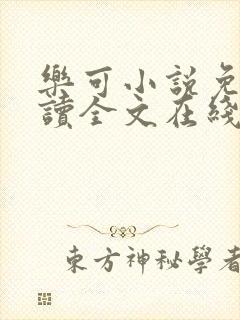 樂可小說免
讀全文在綫
東方神秘學者